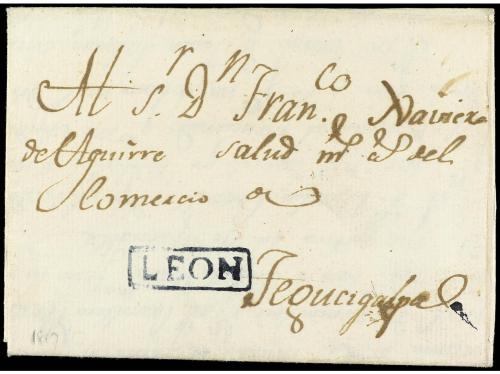 Al S.r D.n Fran.co Xavier
de Aguirre salud m.s a.s del
Comercio &
LEON
Tegucigalpa
1817